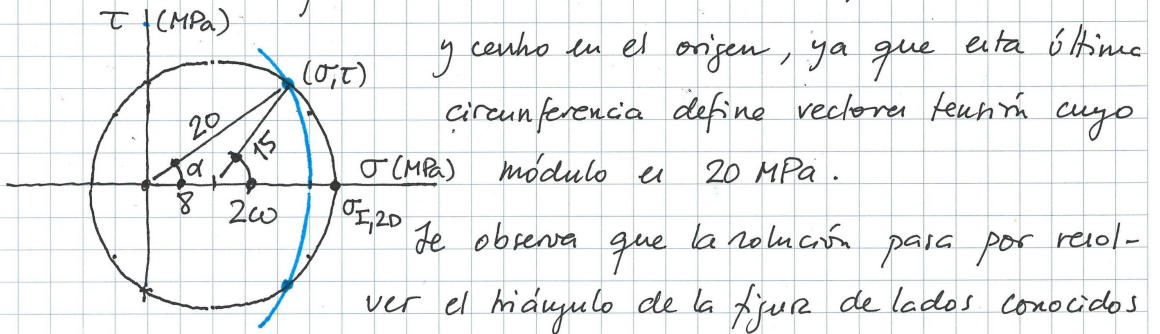 τ (MPa)
y centro en el origen, ya que esta última
(σ,τ)
circunferencia define vectores tensión cuyo
20
15
α
σ (MPa)
módulo es 20 MPa.
8
2ω
σI,2D
Se observa que la solución pasa por resol-
ver el triángulo de la figura de lados conocidos